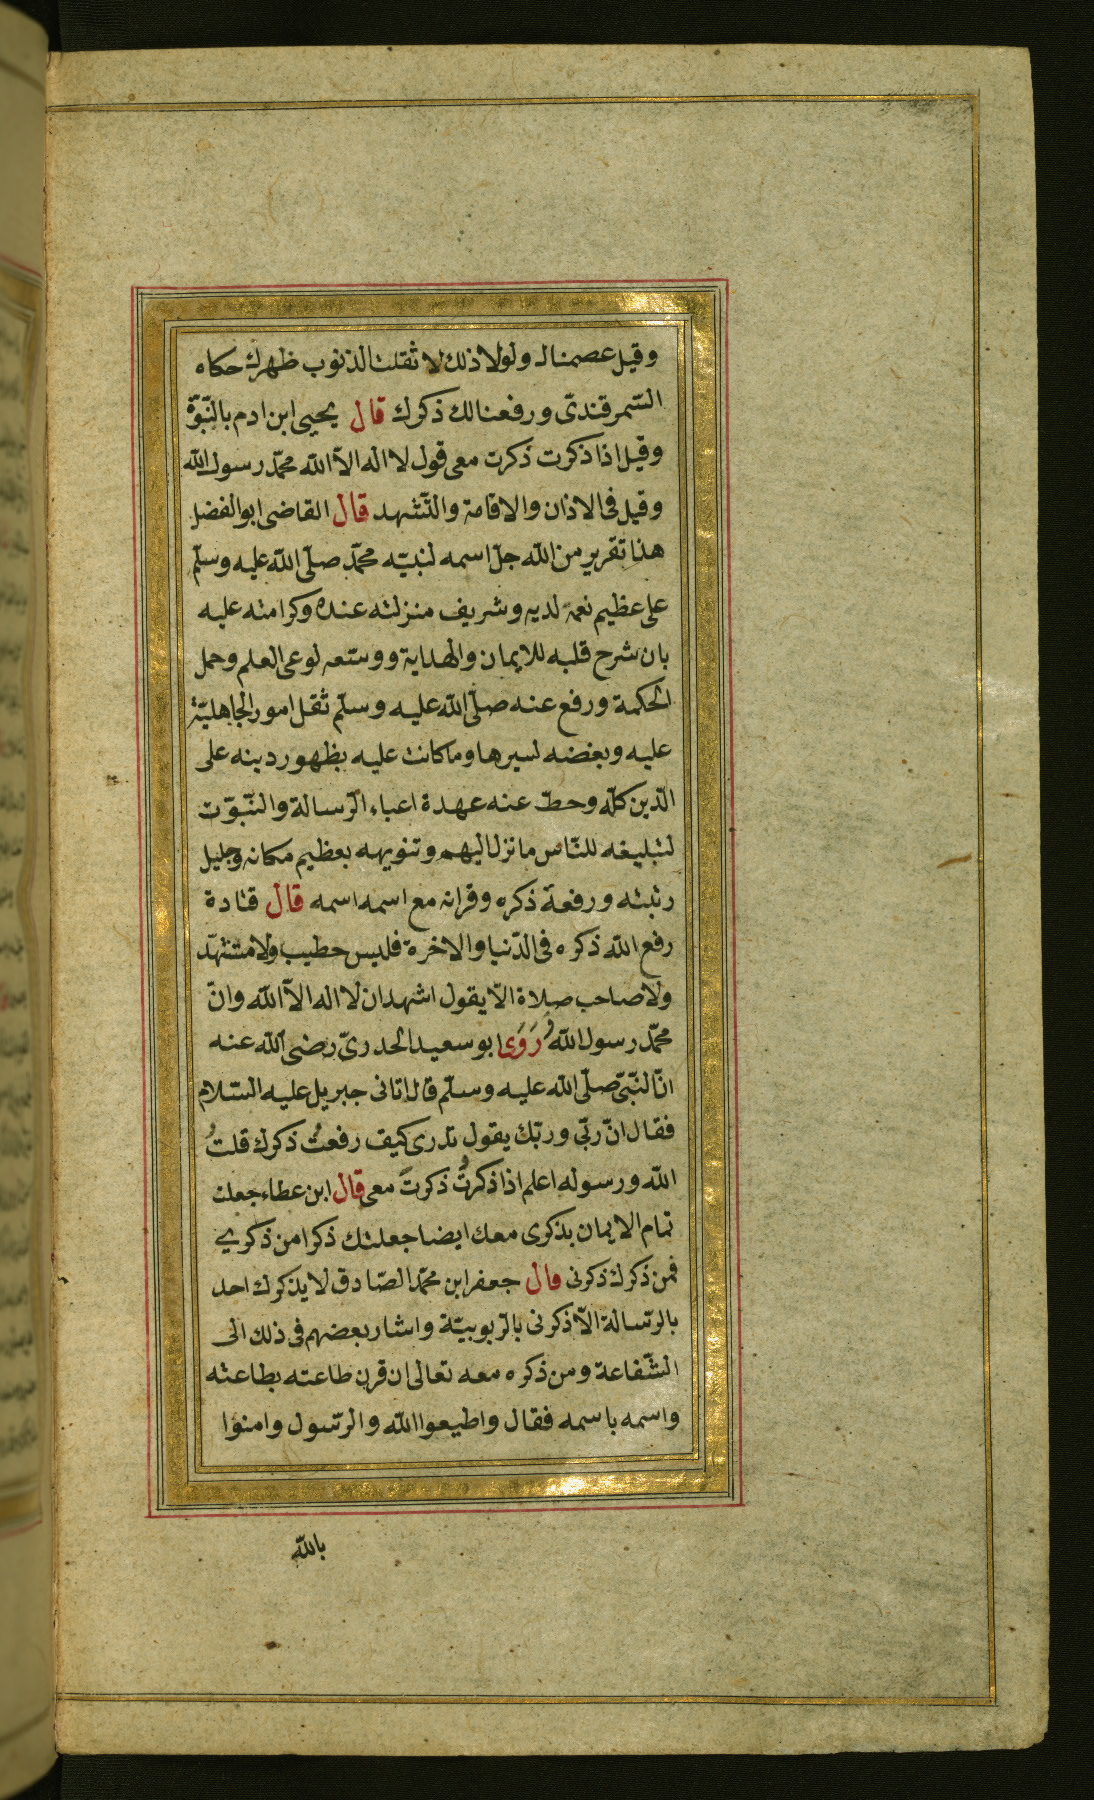 وقيل عصمناك ولولا ذلك لاثقلت الذنوب ظهرك حكاه
السّمرقندىّ ورفعنا لك ذكرك قال يحيى ابن ادم بالنّبوّة
وقيل اذا ذكرت ذكرت معى قول لا اله الاّ الله محمّد رسول الله
وقيل فى الاذان والاقامة والتّشهد قال القاضى ابو الفضل
هذا تقرير من الله جلّ اسمه لنبيّه محمّد صلّى الله عليه وسلّم
على عظيم نعمه لديه وشريف منزلته عنده وكرامته عليه
بان شرح قلبه للايمان والهداية ووسّعه لوعى العلم وحمل
الحكمة ورفع عنه صلّى الله عليه وسلّم ثقل امور الجاهليّة
عليه وبغضه لسيرها وما كانت عليه بظهور دينه على
الدّين كلّه وحطّ عنه عهدة اعباء الرّسالة والنّبوّت
لتبليغه للنّاس ما نزل اليهم وتنويهه بعظيم مكانه وجليل
رتبته ورفعة ذكره وقرانه مع اسمه اسمه قال قتادة
رفع الله ذكره فى الدّنيا والاخرة فليس خطيب ولا متشهّد
ولا صاحب صلاة الاّ يقول اشهد ان لا اله الاّ الله وانّ
محمّد رسول الله وروى ابو سعيد الخدرىّ رضى الله عنه
انّ النّبىّ صلّى الله عليه وسلّم قال اتانى جبريل عليه السّلام
فقال انّ ربّى وربّك يقول تدرى كيف رفعتُ ذكرك قلتُ
الله ورسوله اعلم اذا ذكرتُ ذكرتَ معى قال ابن عطاء جعلت
تمام الايمان بذكرى معك ايضا جعلتك ذكرا من ذكرى
فمن ذكرك ذكرنى قال جعفر ابن محمّد الصّادق لا يذكرك احد
بالرّسالة الاّ ذكرنى بالرّبوبيّة واشار بعضهم فى ذلك الى
الشّفاعة ومن ذكره معه تعالى ان قرن طاعته بطاعته
واسمه باسمه فقال واطيعوا الله والرّسول وامنوا
بالله